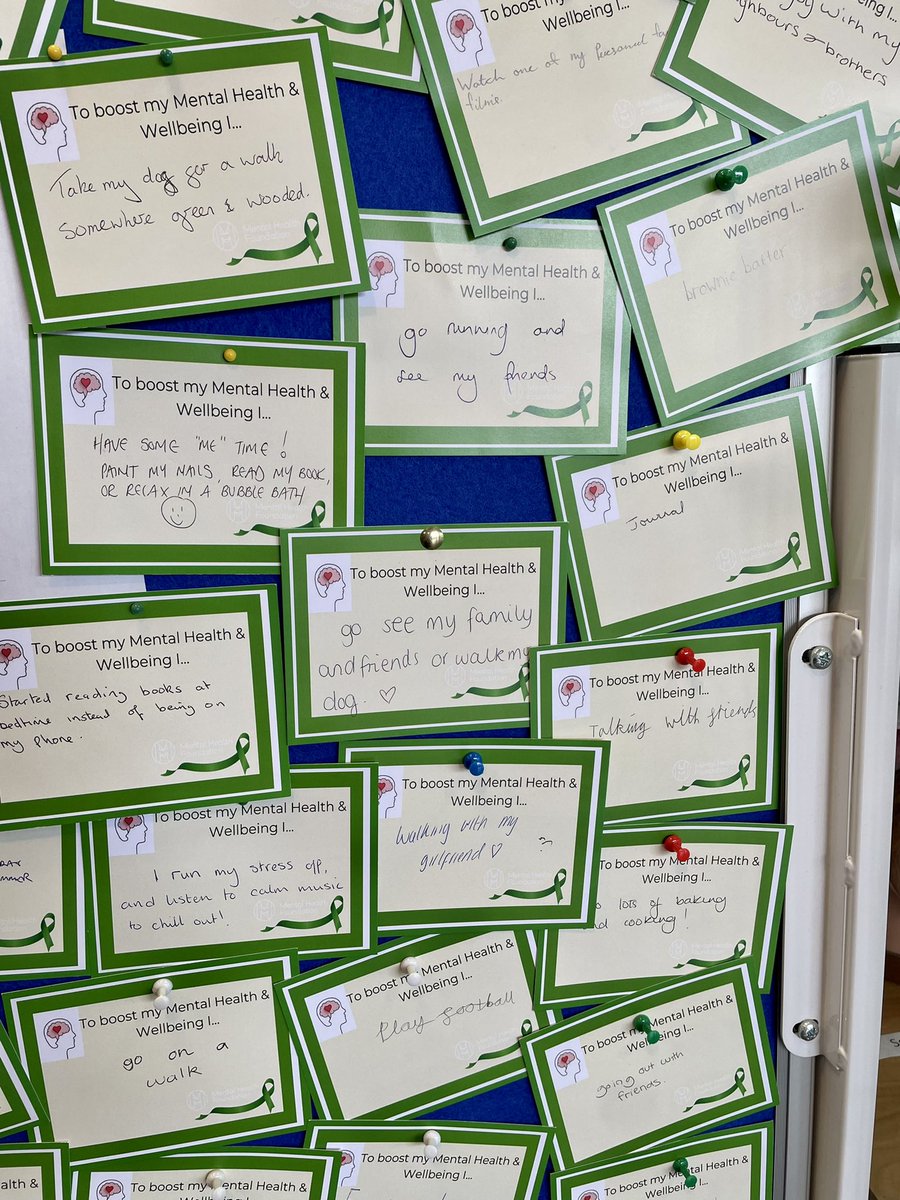 To boost my Mental Health &
Wellbeing I...
Take my dog for a walk
somewhere green & wooded.
Mental Health
Foundation
To boost my Mental
Wellbeing I...
Watch one of my
films.
Wellbeing I...
with my
neighbours & brothers
To boost my Mental Health &
Wellbeing I...
go running and
see my friends
To boost my Mental Health &
Wellbeing I...
brownie batter
To boost my Mental Health &
Wellbeing I...
HAVE SOME "ME" TIME!
PAINT MY NAILS, READ MY BOOK,
OR RELAX IN A BUBBLE BATH
To boost my Mental Health &
Wellbeing I...
Journal
To boost my Mental Health &
Wellbeing I...
go see my family
and friends or walk my
dog. ♡
To boost my Mental Health &
Wellbeing I...
Started reading books at
bedtime instead of being on
my phone.
Mental Health
Foundation
To boost my Mental Health &
Wellbeing I...
Talking with friends
To boost my Mental Health &
Wellbeing I...
Walking with my
girlfriend ♡
To boost my Mental Health &
Wellbeing I...
I run my stress off,
and listen to calm music
to chill out!
To boost my Mental Health &
Wellbeing I...
lots of baking
and cooking!
To boost my Mental Health &
Wellbeing I...
go on a
walk
To boost my Mental Health &
Wellbeing I...
Play football
To boost my Mental Health &
Wellbeing I...
going out with
friends.
To boost my Mental Health &
Wellbeing I...
To boost my Mental Health &
Wellbeing I...
To boost my Mental Health &
Wellbeing I...